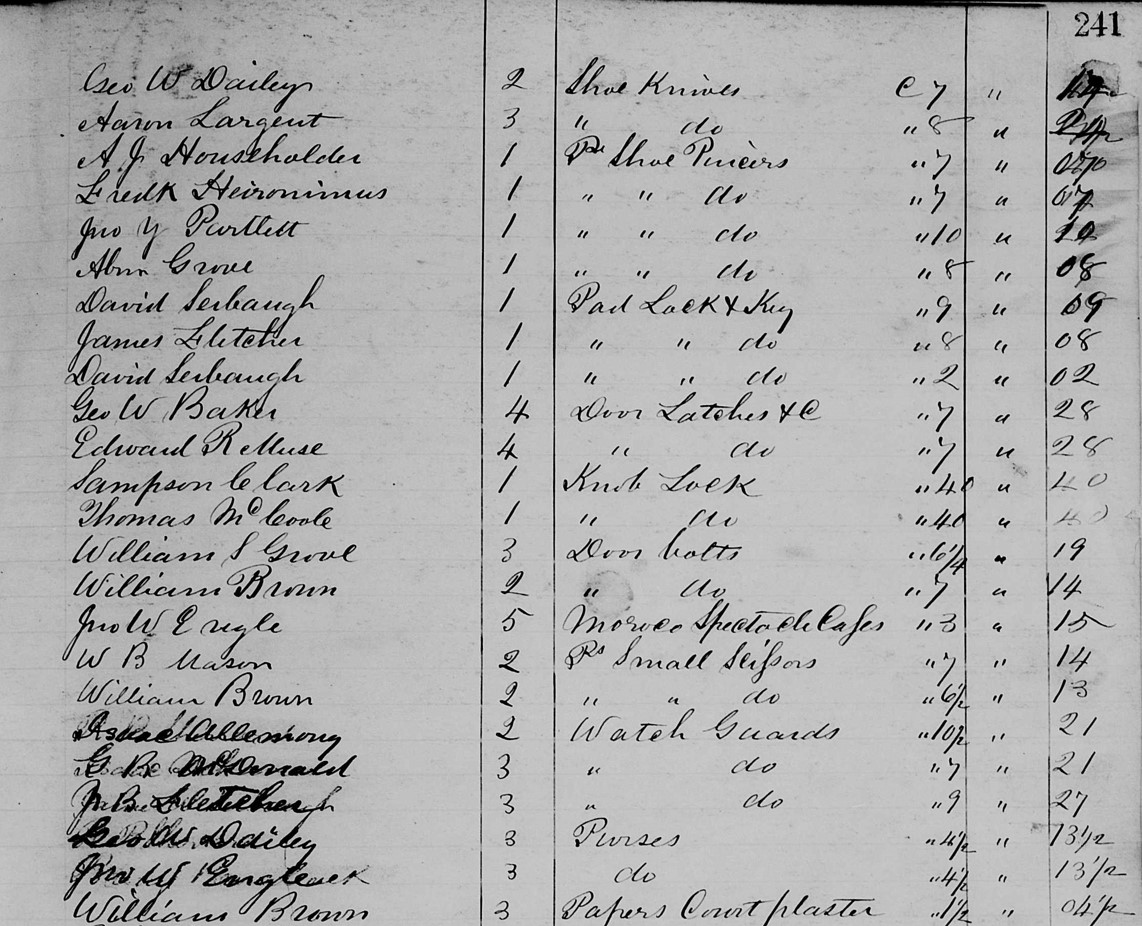 241
Geo W Dailey 2 Shoe Knives C 7 " 14
Aaron Largent 3 " do " 8 " 24
A J Householder 1 Pr Shoe Pincers " 7 " 07
Fredk Heironimus 1 " " do " 7 " 07
Jno Y Partlett 1 " " do " 10 " 10
Abm Grove 1 " " do " 8 " 08
David Serbaugh 1 Pad Lock & Key " 9 " 09
James Fletcher 1 " " do " 8 " 08
David Serbaugh 1 " " do " 2 " 02
Geo W Baker 4 Door Latches &C " 7 " 28
Edward R Muse 4 " do " 7 " 28
Sampson Clark 1 Knob Lock " 40 " 40
Thomas McCoole 1 " do " 40 " 40
William S Grove 3 Door bolts " 6 1/4 " 19
William Brown 2 " do " 7 " 14
Jno W Engle 5 Moroco Spectacle Cases " 3 " 15
W B Mason 2 Prs Small Scissors " 7 " 14
William Brown 2 " " do " 6 1/2 " 13
2 Watch Guards " 10 1/2 " 21
G B McDonald 3 " do " 7 " 21
J B 3 " do " 9 " 27
Geo W Dailey 3 Purses " 4 1/2 " 13 1/2
Jno W Engle 3 do " 4 1/2 " 13 1/2
William Brown 3 Papers Court plaster " 1 1/2 " 04 1/2